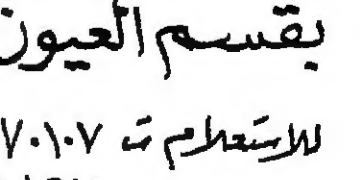 بقسم العيون
للاستعلام ت ٧٠١٠٧